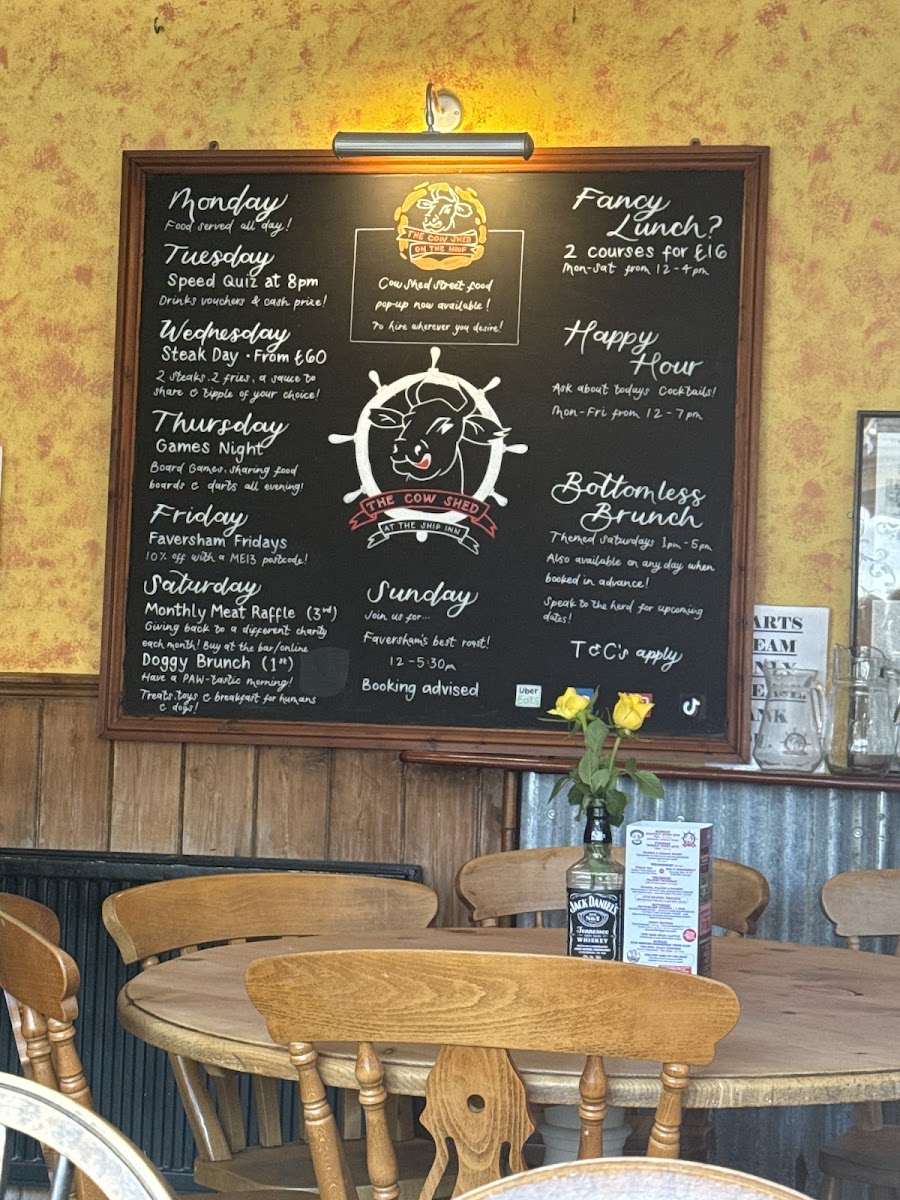 Monday
Food served all day!
Tuesday
Speed Quiz at 8pm
Drinks vouchers & cash prize!
Wednesday
Steak Day • From £60
2 steaks, 2 fries, a sauce to
share & tipple of your choice!
Thursday
Games Night
Board Games, sharing food
boards & darts all evening!
Friday
Faversham Fridays
10% off with a ME13 postcode!
Saturday
Monthly Meat Raffle (3rd)
Giving back to a different charity
each month! Buy at the bar/online
Doggy Brunch (1st)
Have a PAW-tastic morning!
Treats, toys & breakfast for humans
& dogs!
THE COW SHED
ON THE HOOF
Cow Shed street food
pop-up now available!
To hire wherever you desire!
THE COW SHED
AT THE SHIP INN
Sunday
Join us for...
Faversham's best roast!
12-5:30pm
Booking advised
Fancy
Lunch?
2 courses for £16
Mon-Sat from 12-4pm
Happy
Hour
Ask about todays Cocktails!
Mon-Fri from 12-7pm
Bottomless
Brunch
Themed Saturdays 1pm-5pm
Also available on any day when
booked in advance!
Speak to the herd for upcoming
dates!
T&C's apply
Uber
Eats
JACK DANIEL'S
Tennessee
WHISKEY